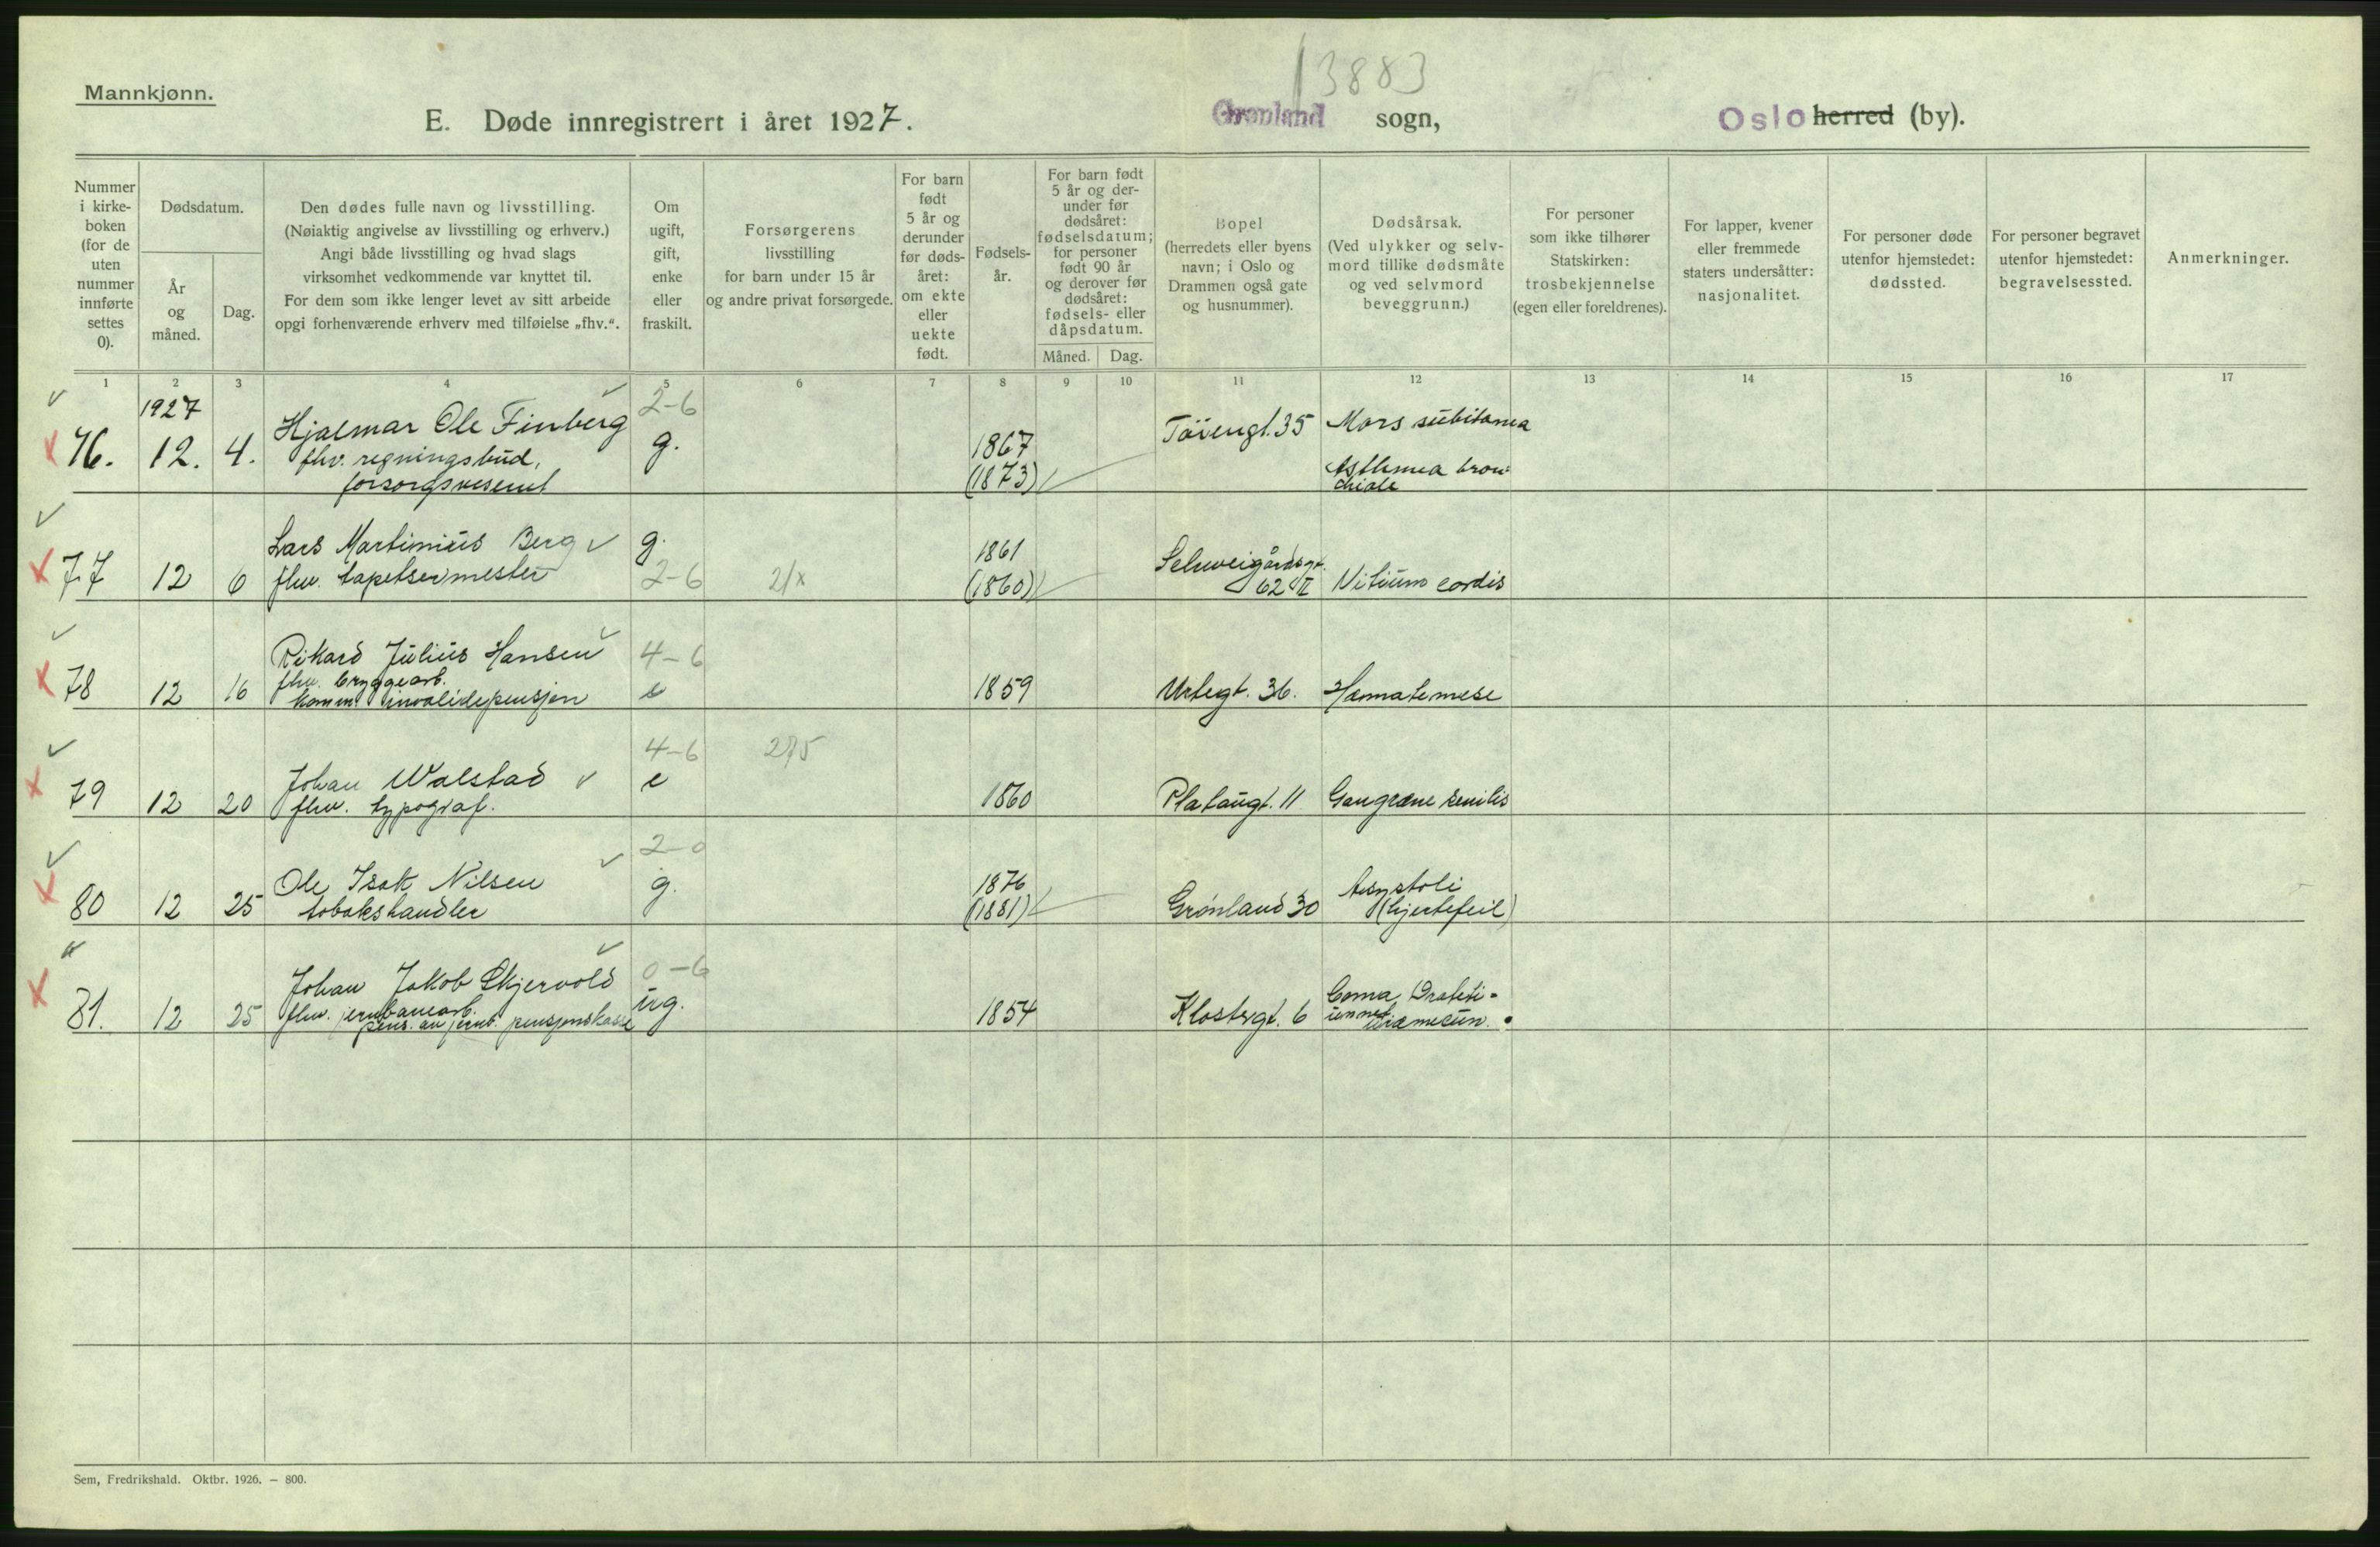 13883
Mannkjønn.
E. Døde innregistrert i året 1927.
Grønland sogn,
Oslo herred (by).
Nummer i kirke- boken (for de uten nummer innførte settes 0).
Dødsdatum.
År og måned.
Dag.
Den dødes fulle navn og livsstilling.
(Nøiaktig angivelse av livsstilling og erhverv.)
Angi både livsstilling og hvad slags
virksomhet vedkommende var knyttet til.
For dem som ikke lenger levet av sitt arbeide
opgi forhenværende erhverv med tilføielse „fhv.“.
Om ugift, gift, enke eller fraskilt.
Forsørgerens
livsstilling
for barn under 15 år
og andre privat forsørgede.
For barn født 5 år og derunder før døds- året: om ekte eller uekte født.
Fødsels- år.
For barn født 5 år og der- under før dødsåret: fødselsdatum; for personer født 90 år og derover før dødsåret: fødsels- eller dåpsdatum.
Måned.
Dag.
Bopel
(herredets eller byens
navn; i Oslo og
Drammen også gate
og husnummer).
Dødsårsak.
(Ved ulykker og selv-
mord tillike dødsmåte
og ved selvmord
beveggrunn.)
For personer
som ikke tilhører
Statskirken:
trosbekjennelse
(egen eller foreldrenes).
For lapper, kvener
eller fremmede
staters undersåtter:
nasjonalitet.
For personer døde
utenfor hjemstedet:
dødssted.
For personer begravet
utenfor hjemstedet:
begravelsessted.
Anmerkninger.
1 2 3 4 5 6 7 8 9 10 11 12 13 14 15 16 17
1927 2-6
76. 12. 4. Hjalmar Ole Finberg g. 1867 Töiengt. 35 Mors subitanea
fhv. regningsbud, (1873) Asthma bron-
forsorgsvesenet chiale
77 12 6 Lars Martinius Berg g. 1861 Schweigårdsgt.
fhv. tapetsermester 2-6 2/x (1860) 62 II Vitium cordis
78 12 16 Rikard Julius Hansen 4-6
fhv. bryggearb.
komm. invalidepensjon e 1859 Urtegt. 36. Hæmatemese
4-6 275
79 12 20 Johan Walstad e
fhv. typograf. 1860 Platougt. 11 Gangræne senilis
2-0
80 12 25 Ole Isak Nilsen g. 1876 Asystoli
tobakshandler (1881) Grønland 30 (hjertefeil)
81. 12 25 Johan Jakob Skjervold 0-6 Coma
fhv. jernbanearb. ug. 1854 Klostergt. 6
pens. av jernb. pensjonskasse
Sem, Fredrikshald. Oktbr. 1926. — 800.